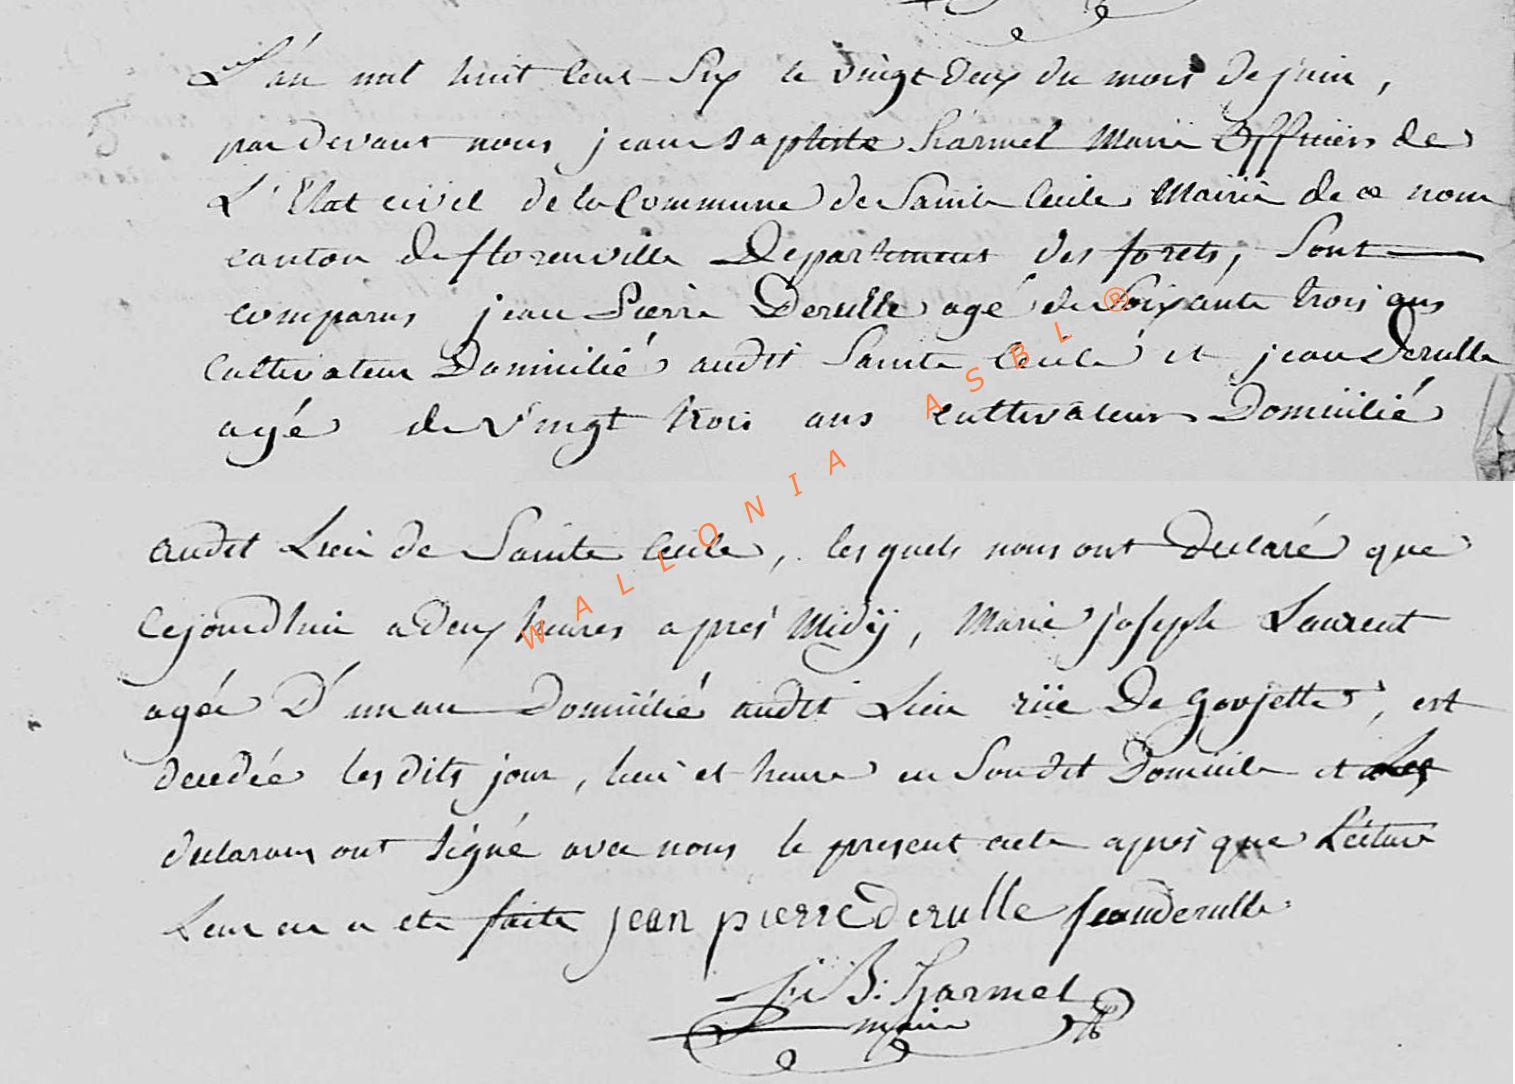 L'an mil huit cent six le vingt deux du mois de juin,
par devant nous jean baptiste harmel Maire Officiers de
L'Etat civil de la Commune de Sainte Cecile Mairie de ce nom
canton de florenville Departement des forets, Sont
comparus jean Pierre Derulle agé de Soixante trois ans
Cultivateur Domicilié audit Sainte Cecile et jean Derulle
agé de vingt trois ans cultivateurs Domicilié
audit Lieu de Sainte Cecile, lesquels nous ont declaré que
Cejourdhui a deux heures apres Midÿ, Marie joseph Laurent
agée D'un an Domicilié audit Lieu rüe De goujette, est
decedée les dits jour, lieu et heure en Son dit Domicile et Les
declarans ont signé avec nous le present acte apres que Lecture
Leur en a ete faite jean pierre derulle jean derulle
J: B: harmel
maire
WALLONIA ASBL ®